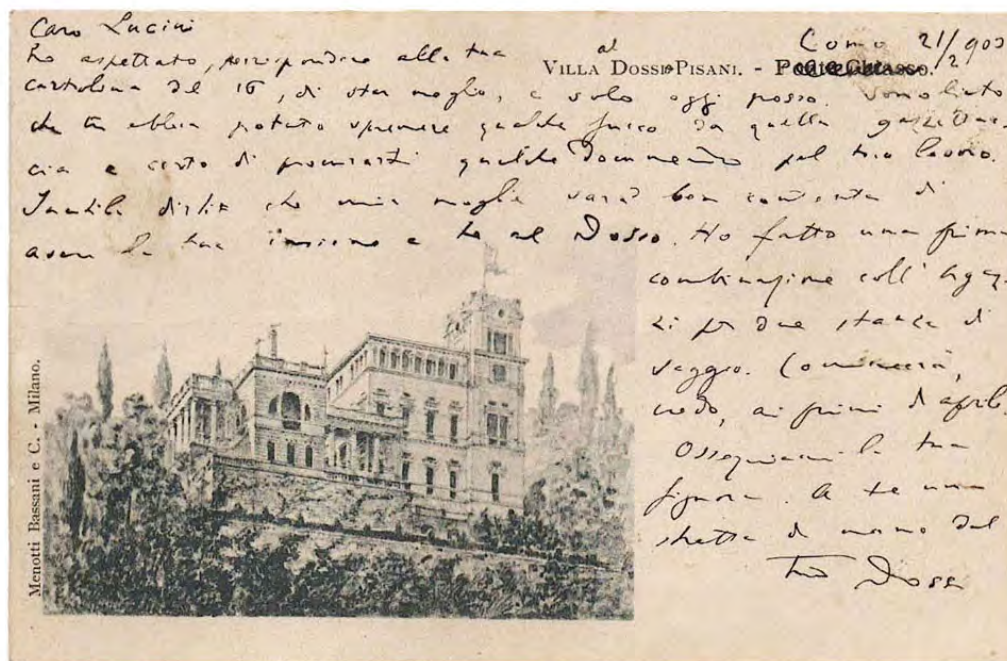 Caro Lucini
Como 21/2 903
VILLA DOSSI PISANI. - Ponte Chiasso.
Ho aspettato, per rispondere alla tua
cartolina del 16, di star meglio, e solo oggi posso. Sono lieto
che tu abbia potuto spremere qualche succo da quella gazzettac-
cia e certo di procurarti qualche documento pel tuo lavoro.
Inutile dirti che mia moglie sarà ben contenta di
avere la tua insieme a te al Dosso. Ho fatto una prima
combinazione coll'
per due stanze di
saggio. Comincerà,
credo, ai primi d'aprile
Ossequiami la tua
signora. A te una
stretta di mano dal
tuo Dossi
Menotti Bassani e C. - Milano.